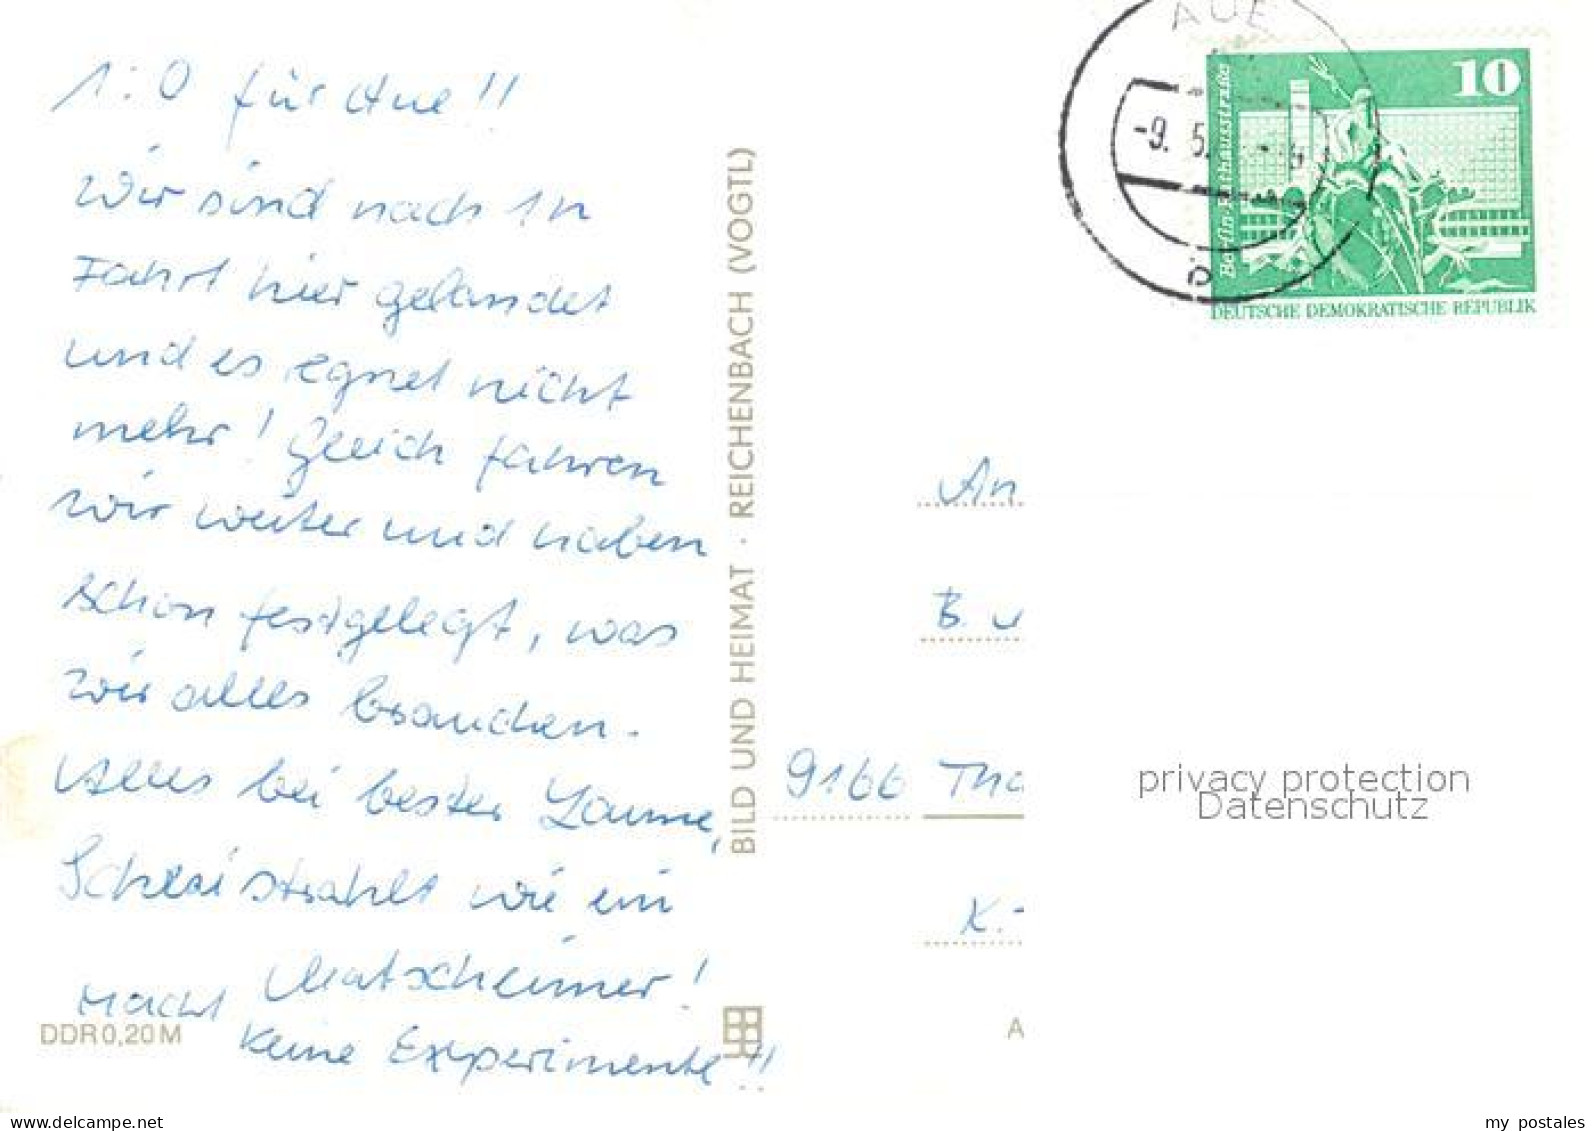 1:0 für Aue!!
Wir sind nach 1h
Fahrt hier gelandet
und es regnet nicht
mehr! Gleich fahren
wir weiter und haben
schon festgelegt, was
wir alles brauchen.
Alles bei bester Laune,
strahlt wie ein
Matscheimer!
Macht
keine Experimente!!
DDR 0,20 M
BILD UND HEIMAT · REICHENBACH (VOGTL)
AUE
-9. 5.
Berlin-Rathausstraße
10
DEUTSCHE DEMOKRATISCHE REPUBLIK
An
B. u
9166 Tha
K.-
A
privacy protection
Datenschutz
www.delcampe.net
my_postales